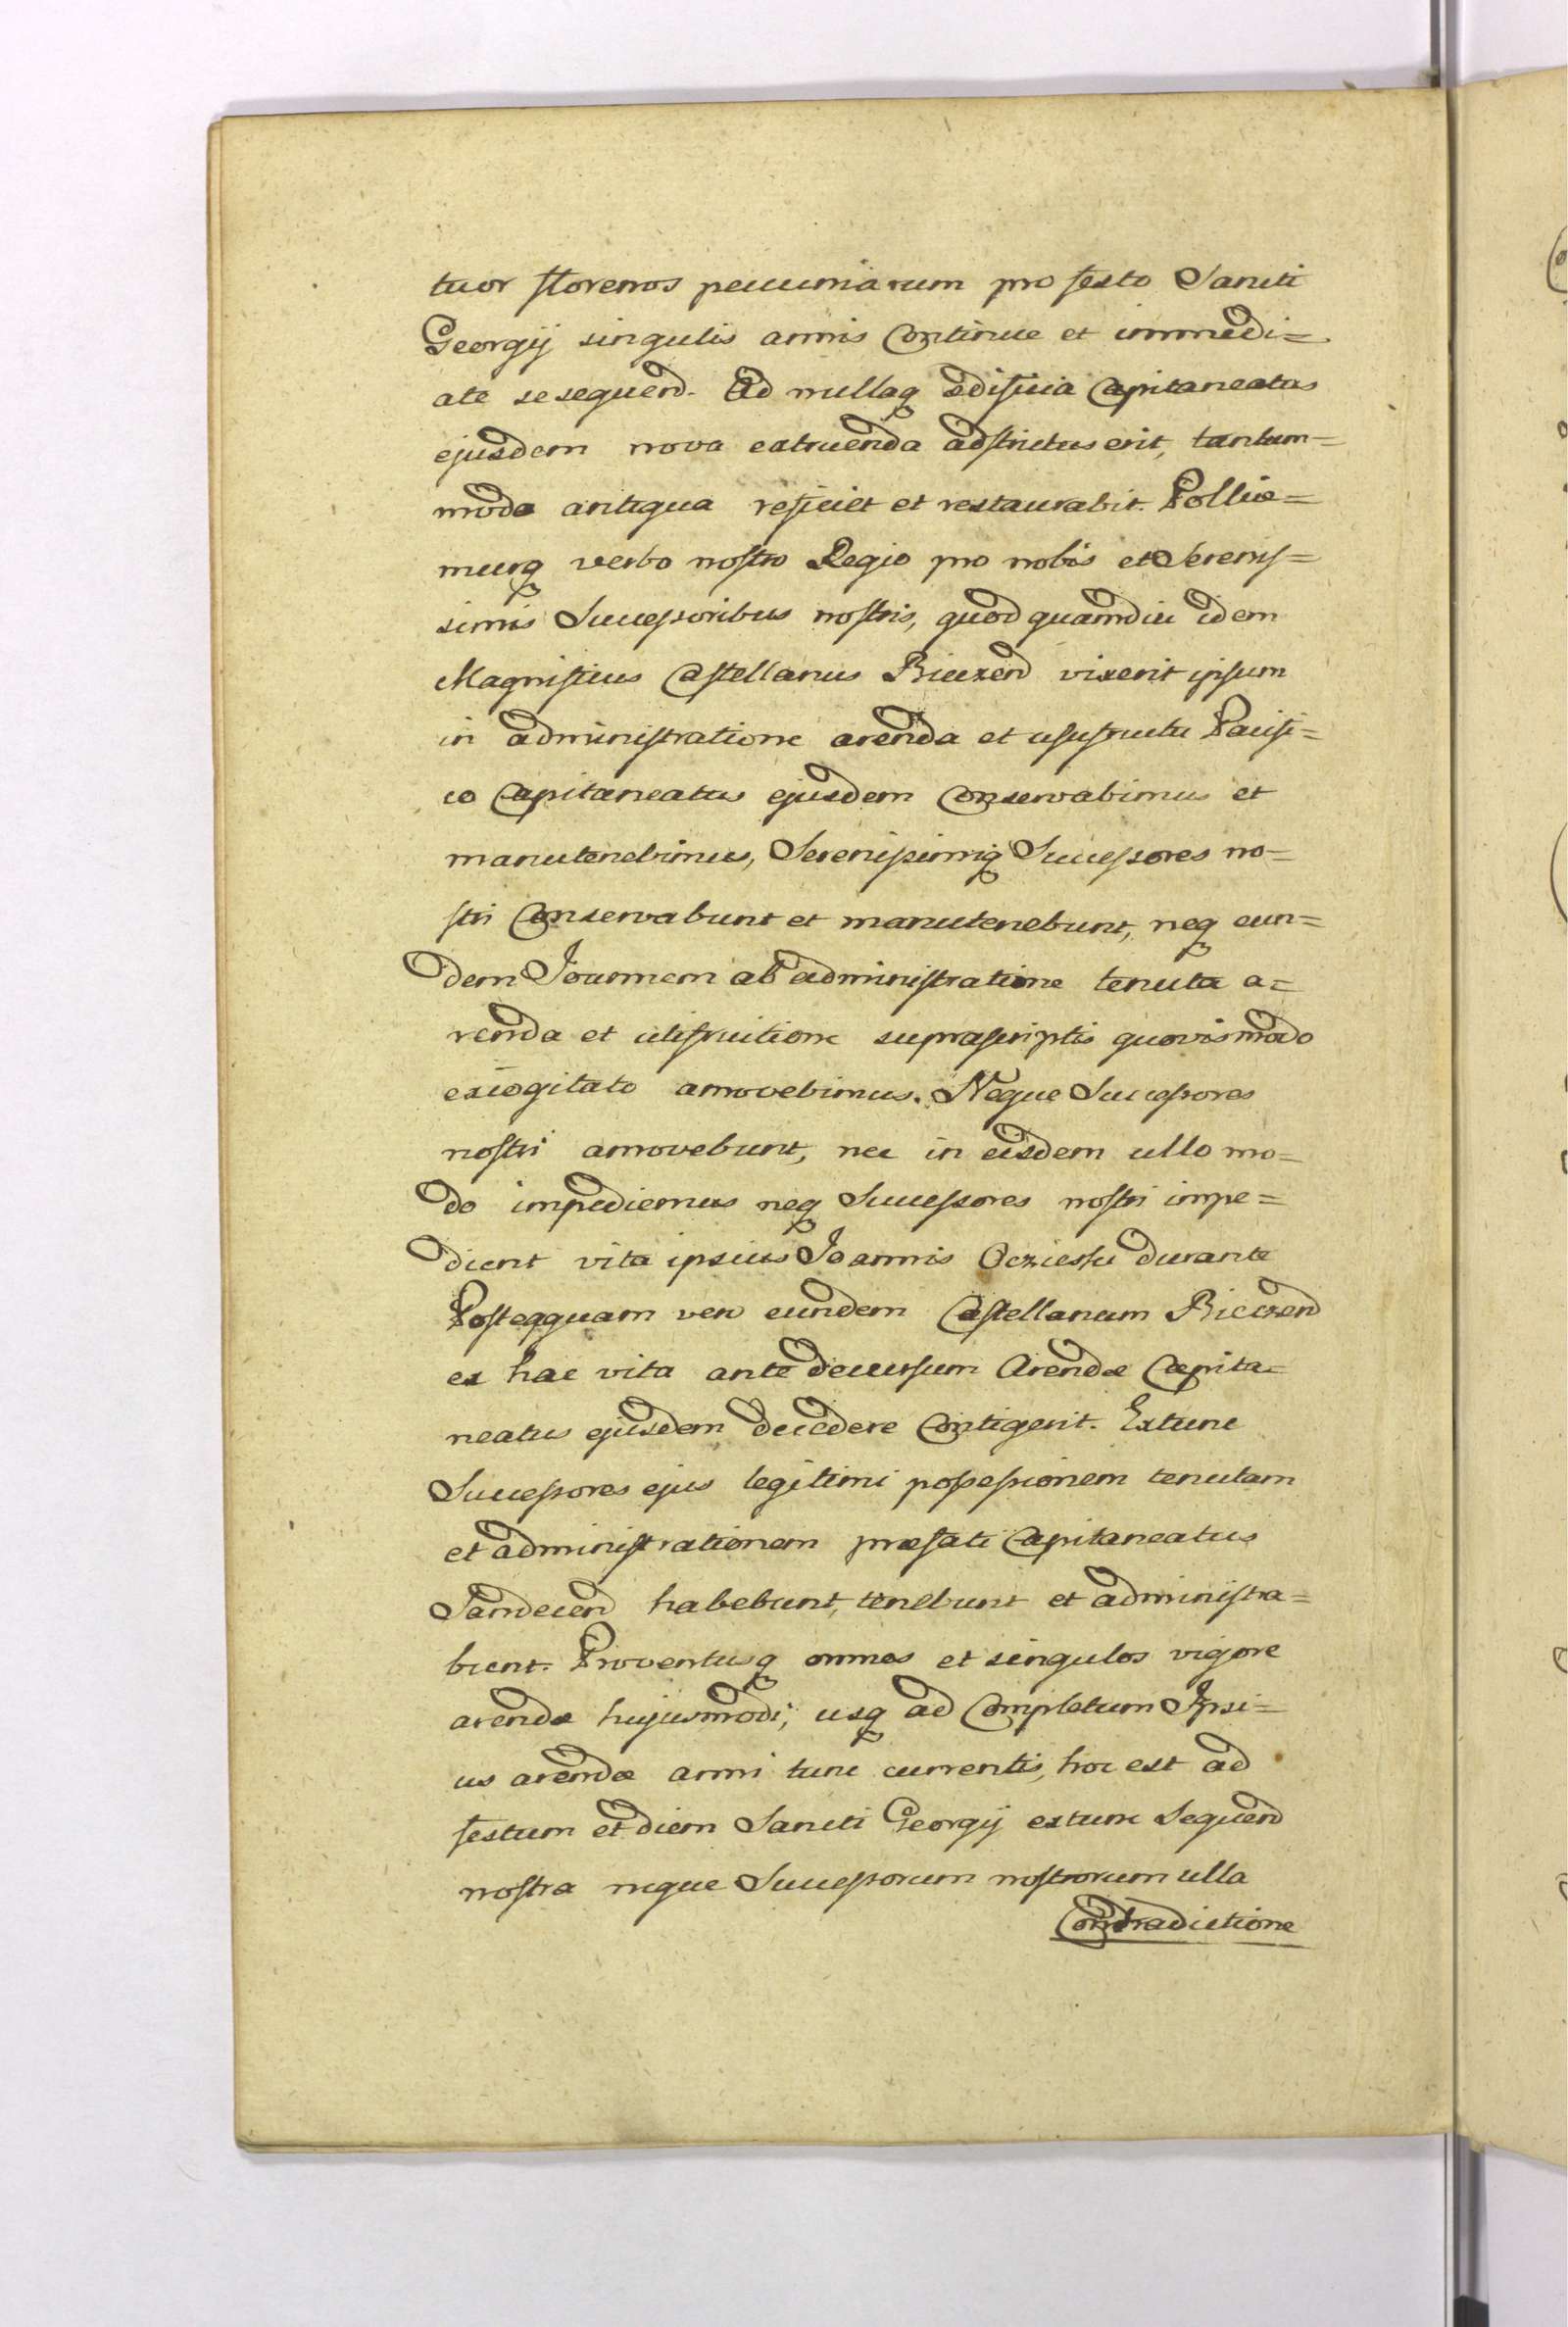 tuor florenos pecuniarum pro festo Sancti
Georgij singulis annis Continue et immedi=
ate sesequend. Ad nullaq ædificia Capitaneatus
ejusdem nova extruenda adstrictus erit, tantum=
modo antiqua reficiet et restaurabit. Pollice=
murq verbo nostro Regio pro nobis et Serenis=
simis Successoribus nostris, quod quamdiu idem
Magnificus Castellanus Bieczend vixerit ipsum
in administratione arenda et usufructu Pacifi=
co Capitaneatus ejusdem Conservabimus et
manutenebimus, Serenissimiq Successores no=
stri Conservabunt et manutenebunt, neq eun=
dem Joannem ab administratione tenuta a=
renda et utifruitione suprascriptis quovismodo
exiogitato amovebimus. Neque Successores
nostri amovebunt, nec in eisdem ullo mo=
do impediemus neq Successores nostri impe=
dient vita ipsius Joannis Ocziessu durante
Posteaquam vero eundem Castellanum Bieczend
ex hac vita ante decursum Arendæ Capita=
neatus ejusdem decedere Contigerit. Extunc
Successores ejus legitimi possessionem tenutam
et administrationem præfati Capitaneatus
Sandecend habebunt, tenebunt et administra=
bunt. Proventusq omnes et singulos vigore
arendæ hujusmodi, usq ad Completum Ipsi=
us arendæ anni tunc currentis, hoc est ad
festum et diem Sancti Georgij extunc Sequend
nostra neque Successorum nostrorum ulla
Contradictione